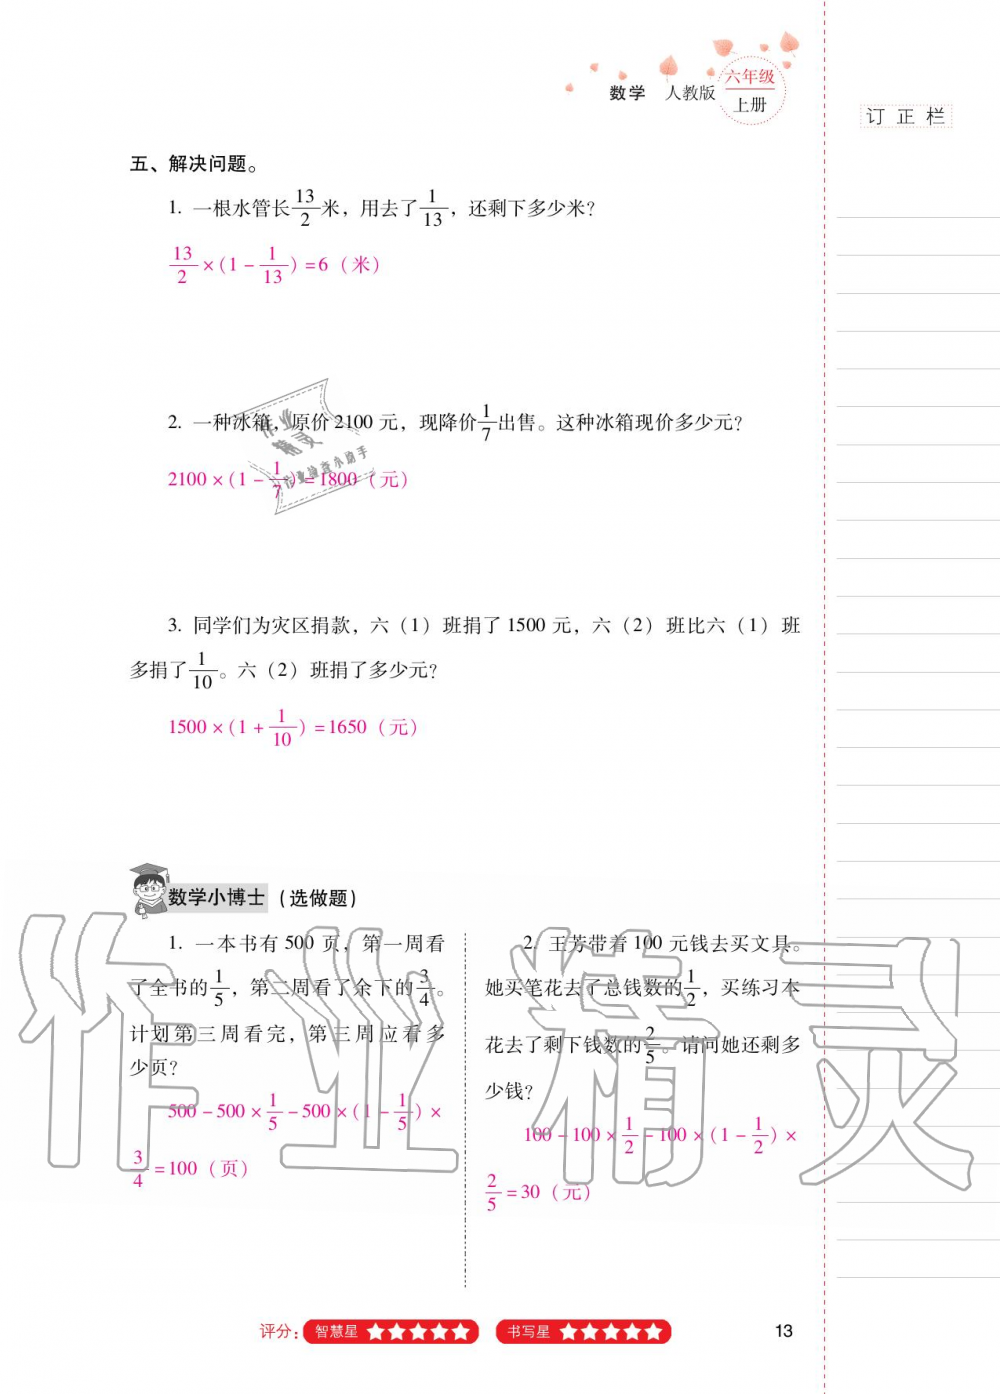 数学 人教版 六年级
上册
订正栏
五、解决问题。
1. 一根水管长13/2米，用去了1/13，还剩下多少米？
13/2×(1-1/13)=6（米）
2. 一种冰箱，原价2100元，现降价1/7出售。这种冰箱现价多少元？
2100×(1-1/7)=1800（元）
作业
精灵
作业检查小助手
3. 同学们为灾区捐款，六（1）班捐了1500元，六（2）班比六（1）班
多捐了1/10。六（2）班捐了多少元？
1500×(1+1/10)=1650（元）
数学小博士（选做题）
1. 一本书有500页，第一周看
了全书的1/5，第二周看了余下的3/4。
计划第三周看完，第三周应看多
少页？
500-500×1/5-500×(1-1/5)×
3/4=100（页）
2. 王芳带着100元钱去买文具。
她买笔花去了总钱数的1/2，买练习本
花去了剩下钱数的2/5。请问她还剩多
少钱？
100-100×1/2-100×(1-1/2)×
2/5=30（元）
作业精灵
评分： 智慧星 ★★★★★ 书写星 ★★★★★
13